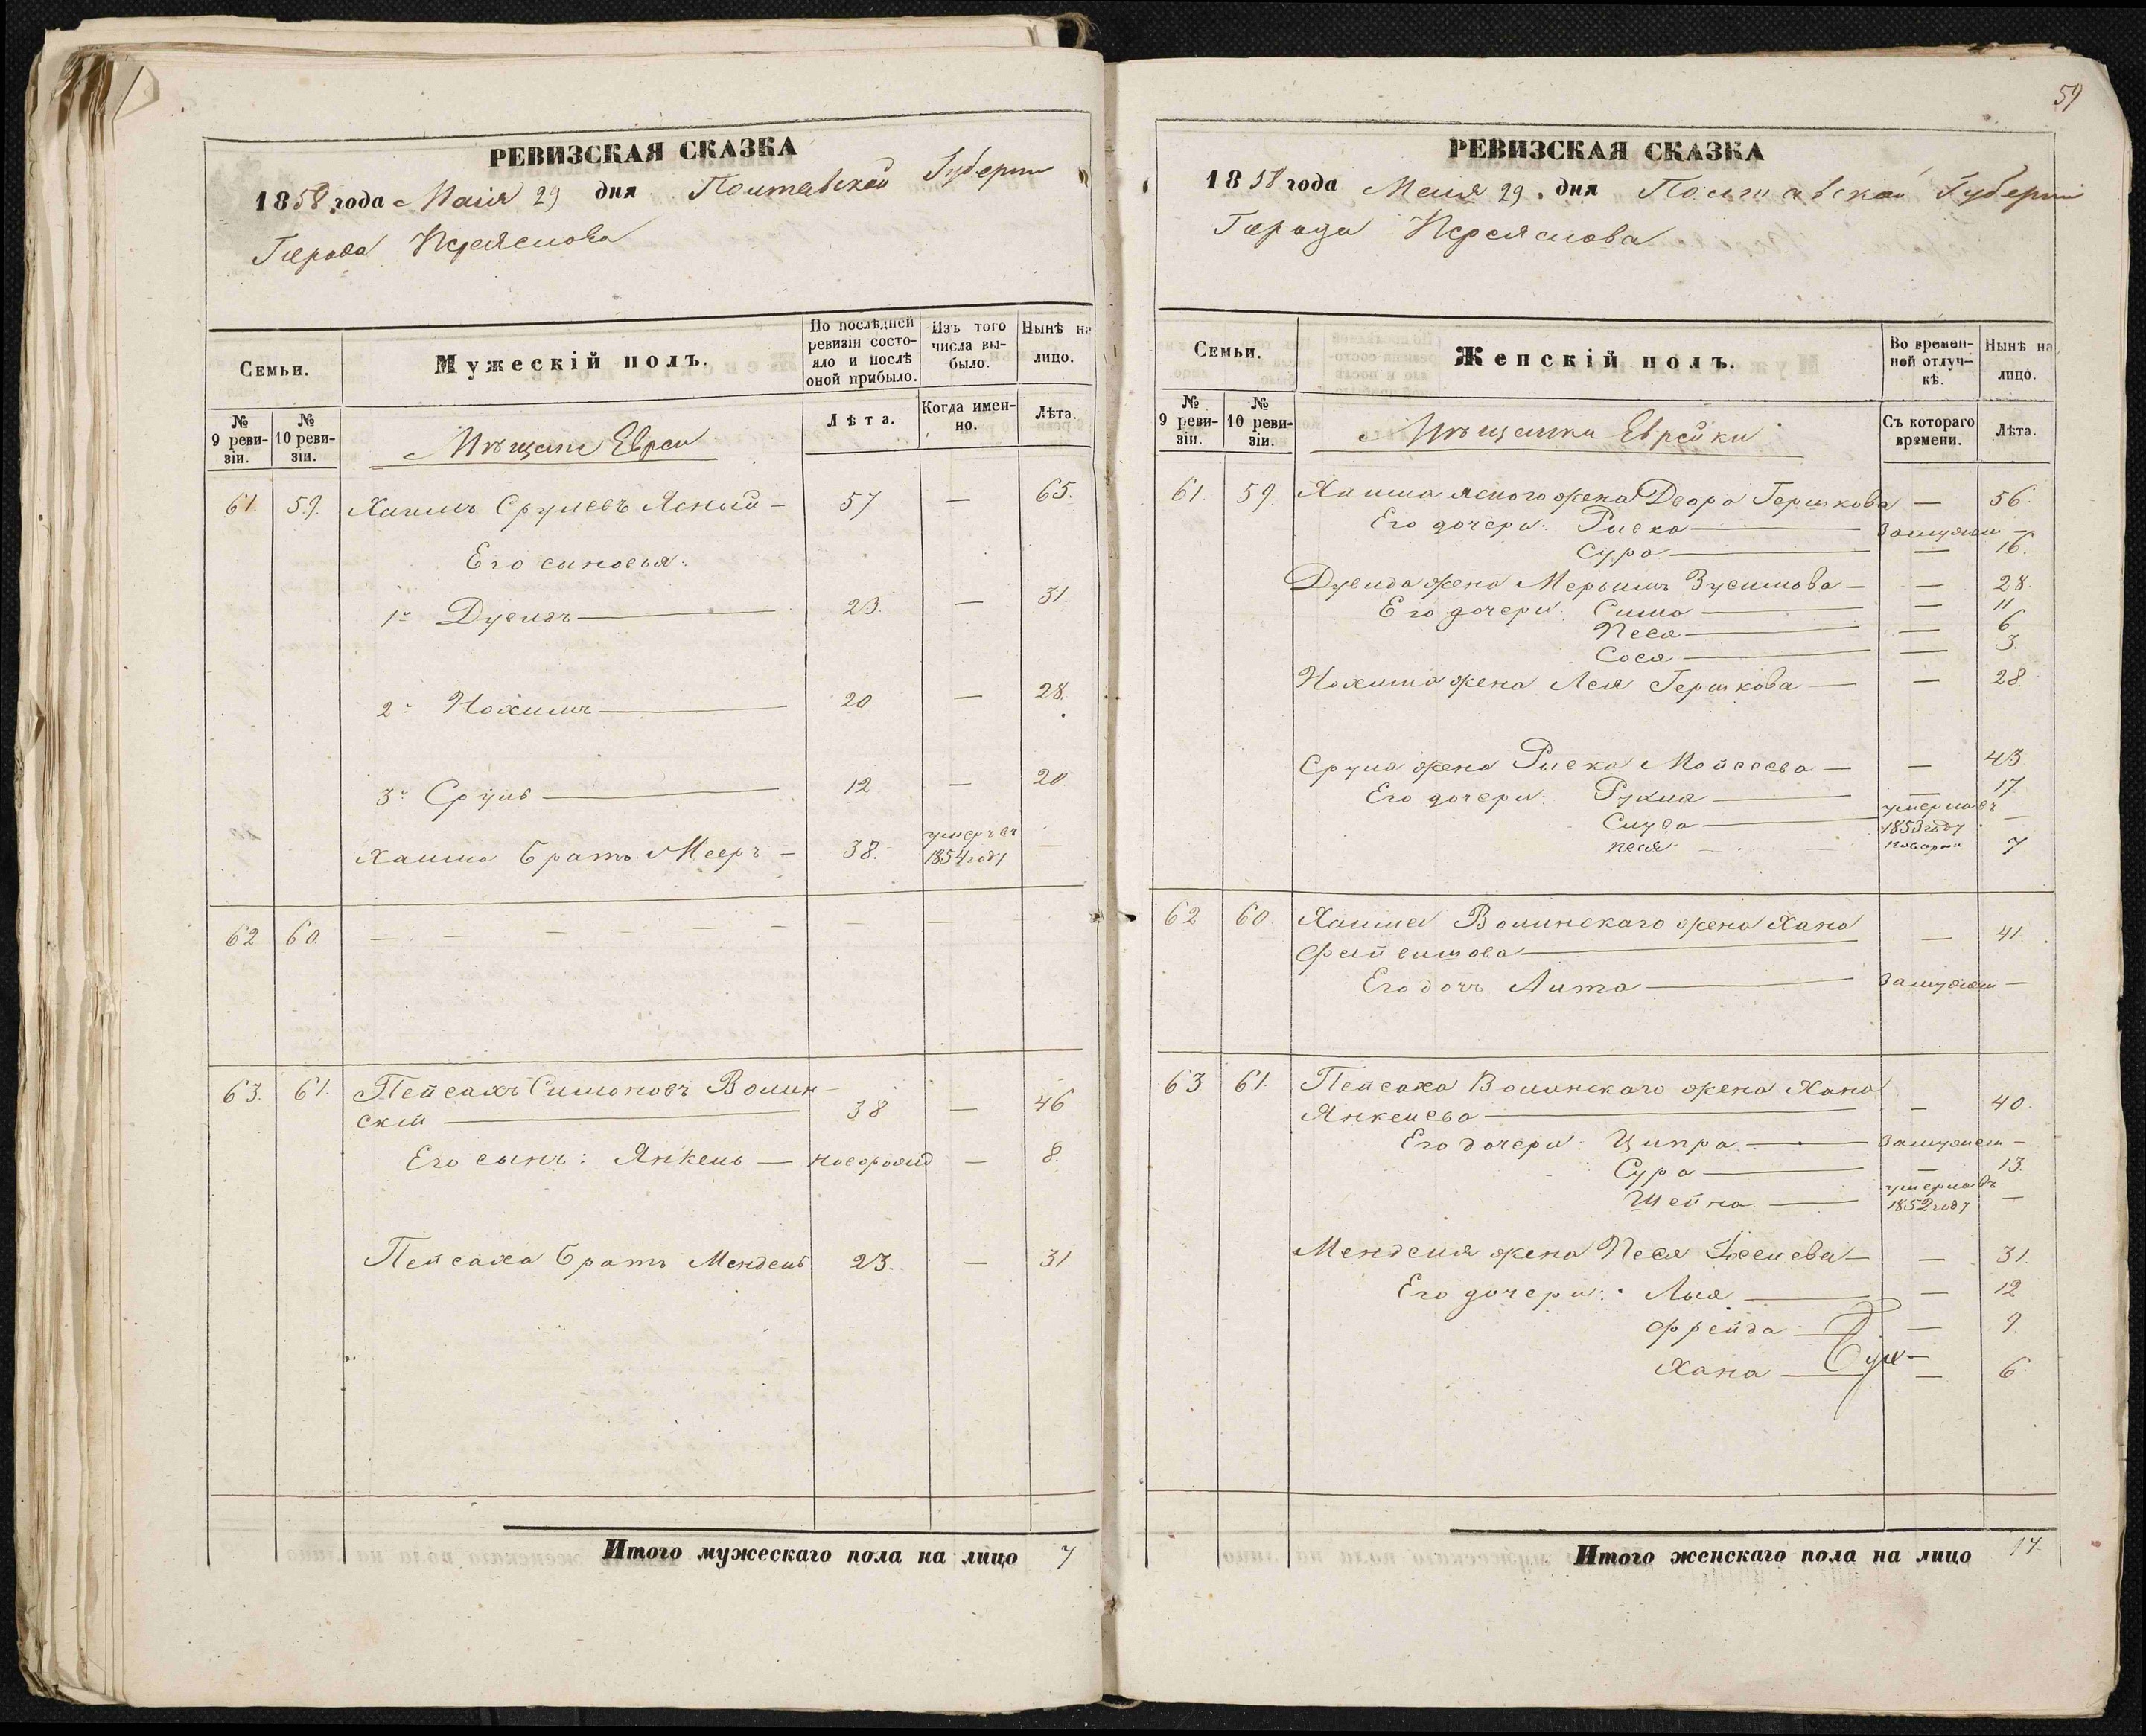 РЕВИЗСКАЯ СКАЗКА
1858 года Маія 29 дня Полтавской Губерніи
Города Переяслова
Семьи.
Мужескій полъ.
По послѣдней ревизіи состояло и послѣ оной прибыло.
Изъ того числа выбыло.
Нынѣ на лицо.
№ 9 ревизіи.
№ 10 ревизіи.
Мѣщане Евреи
Лѣта.
Когда именно.
Лѣта.
61. 59. Хаимъ Срулевъ Ясный — 57 — 65.
Его сыновья:
1й Дувидъ — 23. — 31
2й Нохимъ — 20 — 28.
3й Сруль — 12 — 20
Хаима братъ Мееръ — 38. умеръ въ 1854 году —
62 60. — — — — — — — —
63. 61. Пейсахъ Симоновъ Волин-
скій — 38 — 46
Его сынъ: Янкель — новорожд — 8.
Пейсаха братъ Мендель 23. — 31
Итого мужескаго пола на лицо 7
59
РЕВИЗСКАЯ СКАЗКА
1858 года Маія 29. дня Полтавской Губерніи
Города Переяслова
Семьи.
Женскій полъ.
Во временной отлучкѣ.
Нынѣ на лицо.
№ 9 ревизіи.
№ 10 ревизіи.
Мѣщанки Еврейки
Съ котораго времени.
Лѣта.
61. 59. Хаима Ясного жена Двора Гершкова — 56.
Его дочери: Рыска — Замужем —
Сура — — 16.
Дувида жена Мерьимъ Зусимова — — 28.
Его дочери: Сима — — 11
Песя — — 6
Сося — — 3.
Нохима жена Лея Гершкова — — 28.
Срула жена Рыска Мойсеева — — 43
Его дочери: Рухля — — 17
Слува — умерла въ 1853 году —
Песя — 7
62 60 Хаима Волинскаго жена Хана
Файвишова — — 41.
Его дочь Лита — Замужем —
63 61. Пейсаха Волинскаго жена Хана
Янкелева — — 40.
Его дочери: Ципра — Замужем —
Сура — — 13.
Шейна — умерла въ 1852 году —
Менделя жена Песя — — 31.
Его дочери: Лыя — — 12
Фрейда — — 9.
Хана — — 6.
Итого женскаго пола на лицо 17.